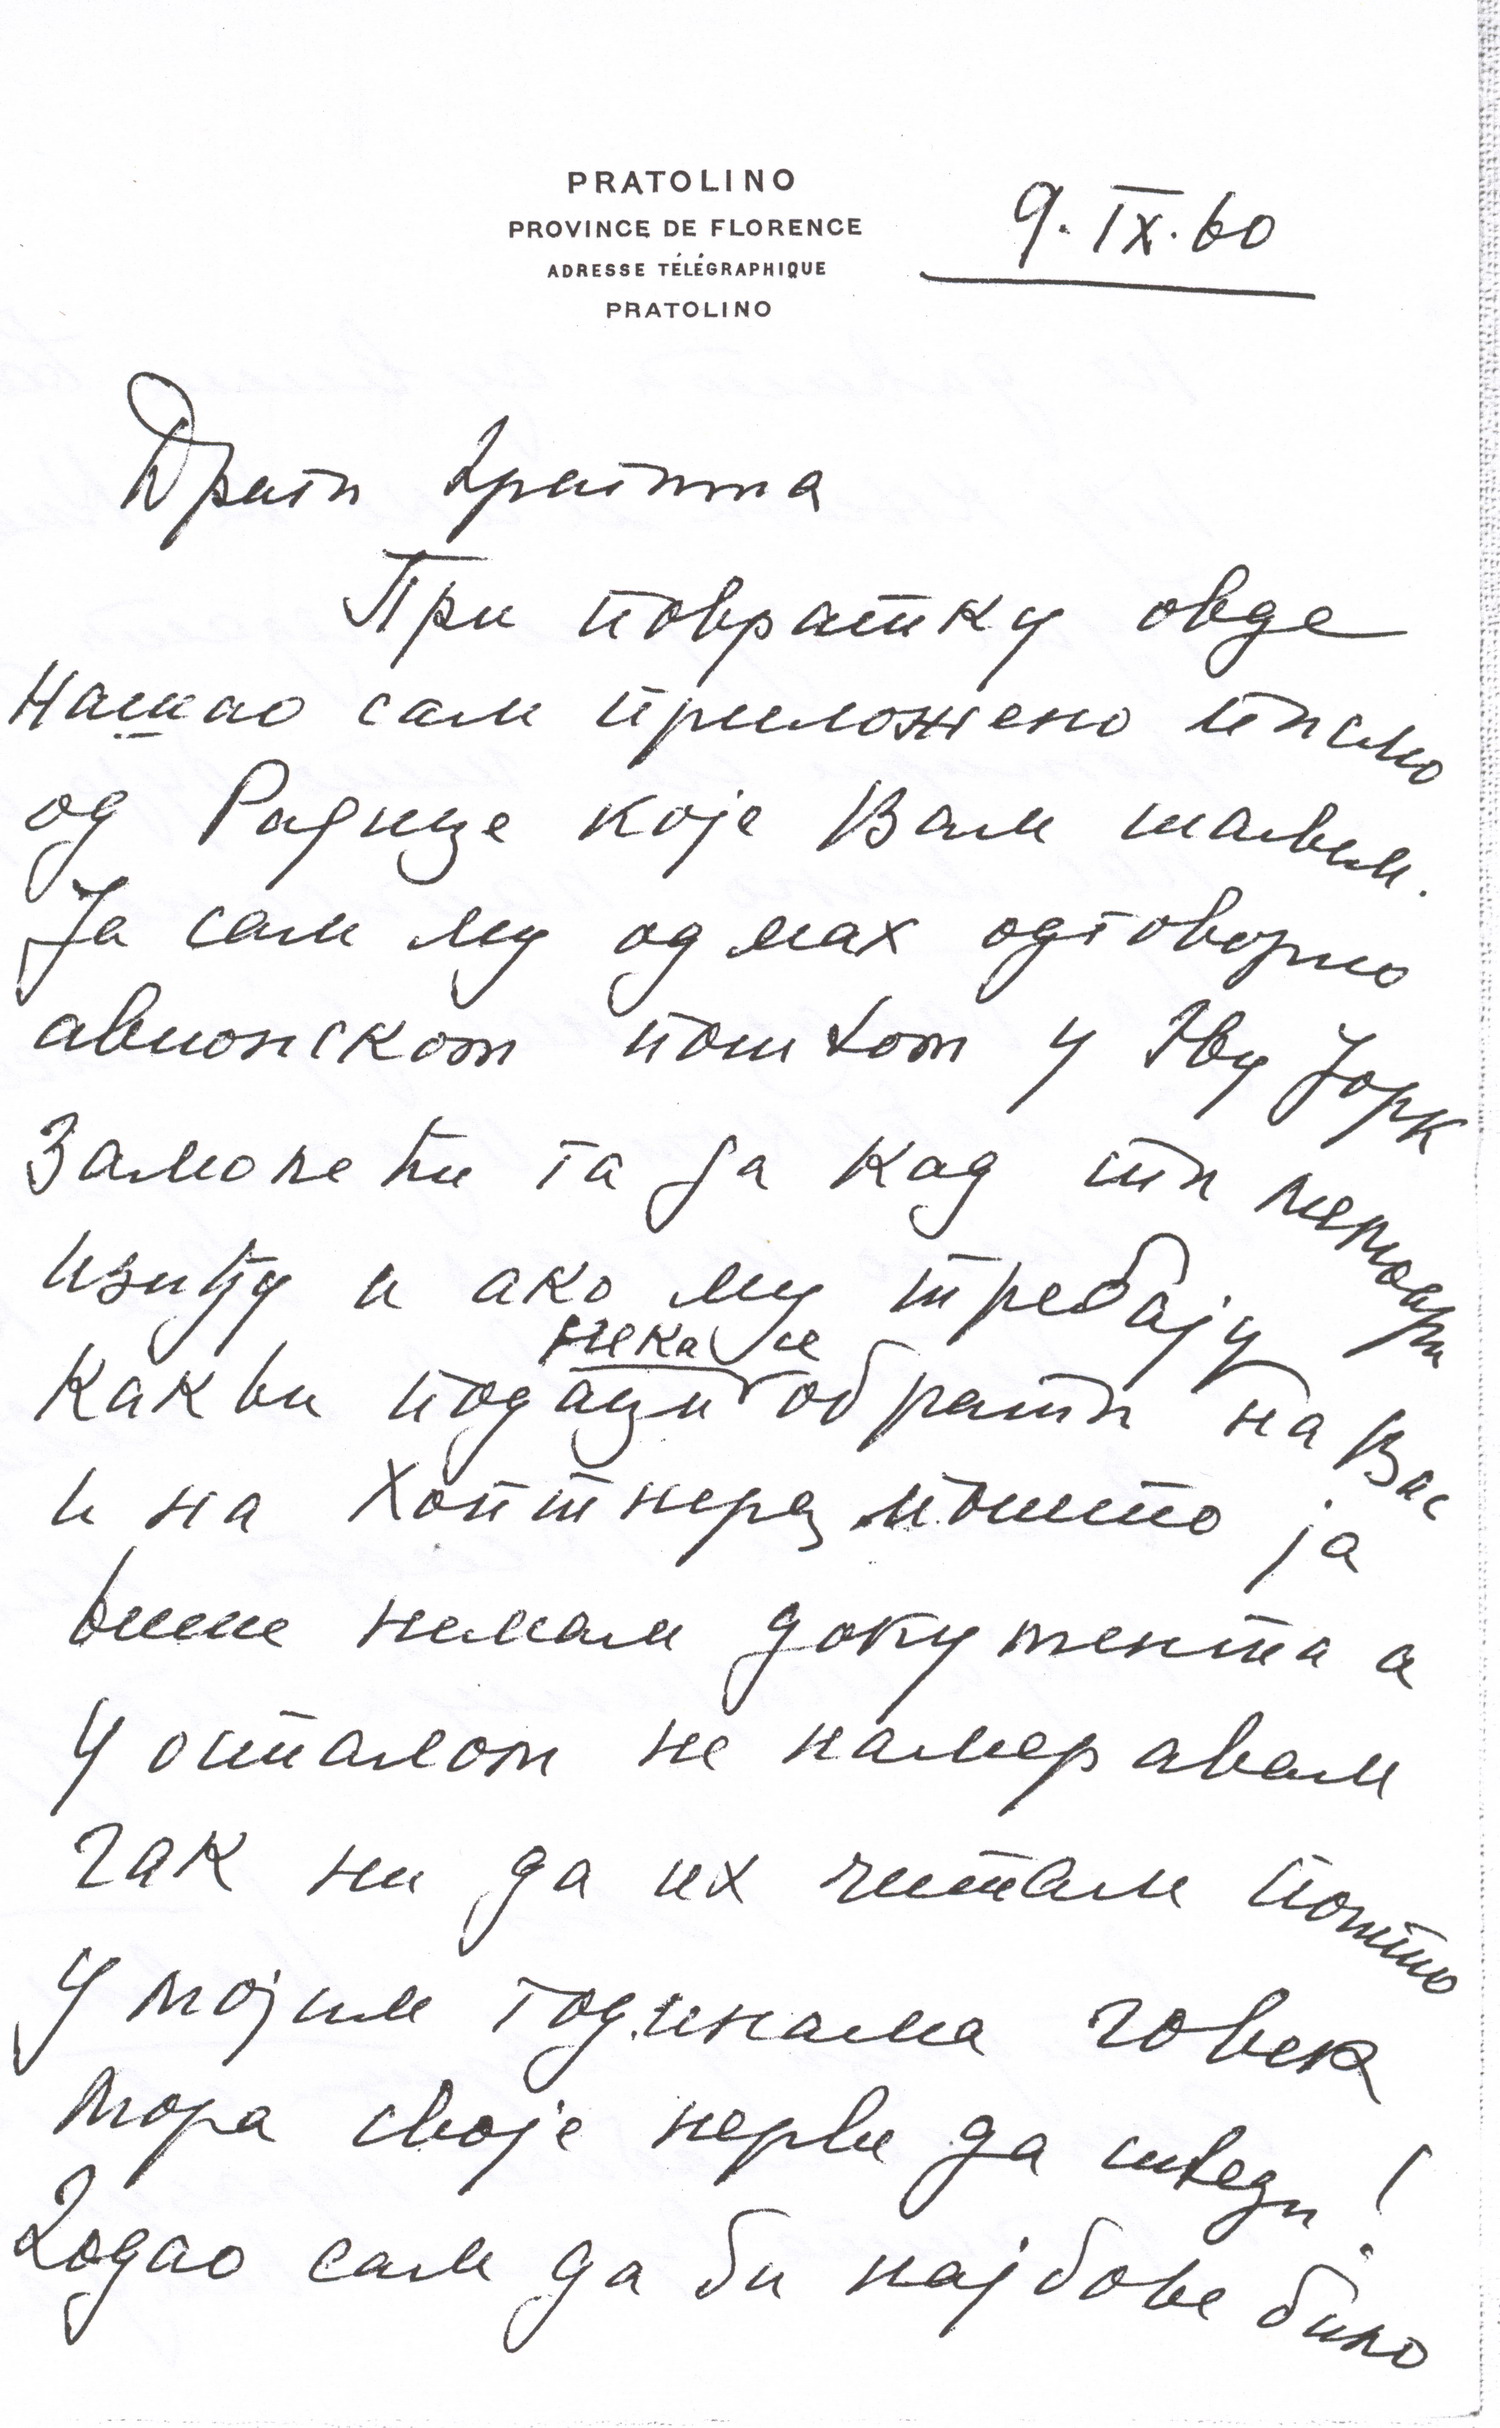 PRATOLINO
PROVINCE DE FLORENCE
ADRESSE TÉLÉGRAPHIQUE
PRATOLINO
9.IX.60
Драги
При повратку овде
нашао сам приложено писмо
од Радице које Вам шаљем.
Ја сам му одмах одговорио
авионском поштом у Њу Јорк
замолећи га да кад ти мемоари
изиђу и ако му требају
какви подаци нека се обрати на Вас
и на Хоптнера пошто ја
више немам докумената а
у осталом не намеравам
чак ни да их читам пошто
у мојим годинама човек
мора своје нерве да штеди!
Додао сам да би најбоље било